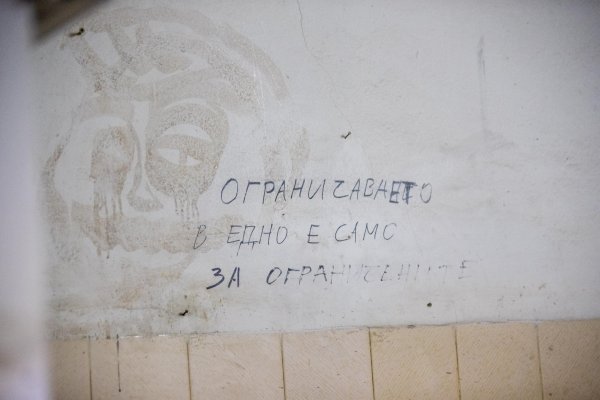 ОГРАНИЧАВАНЕТО
В ЕДНО Е САМО
ЗА ОГРАНИЧЕНИТЕ